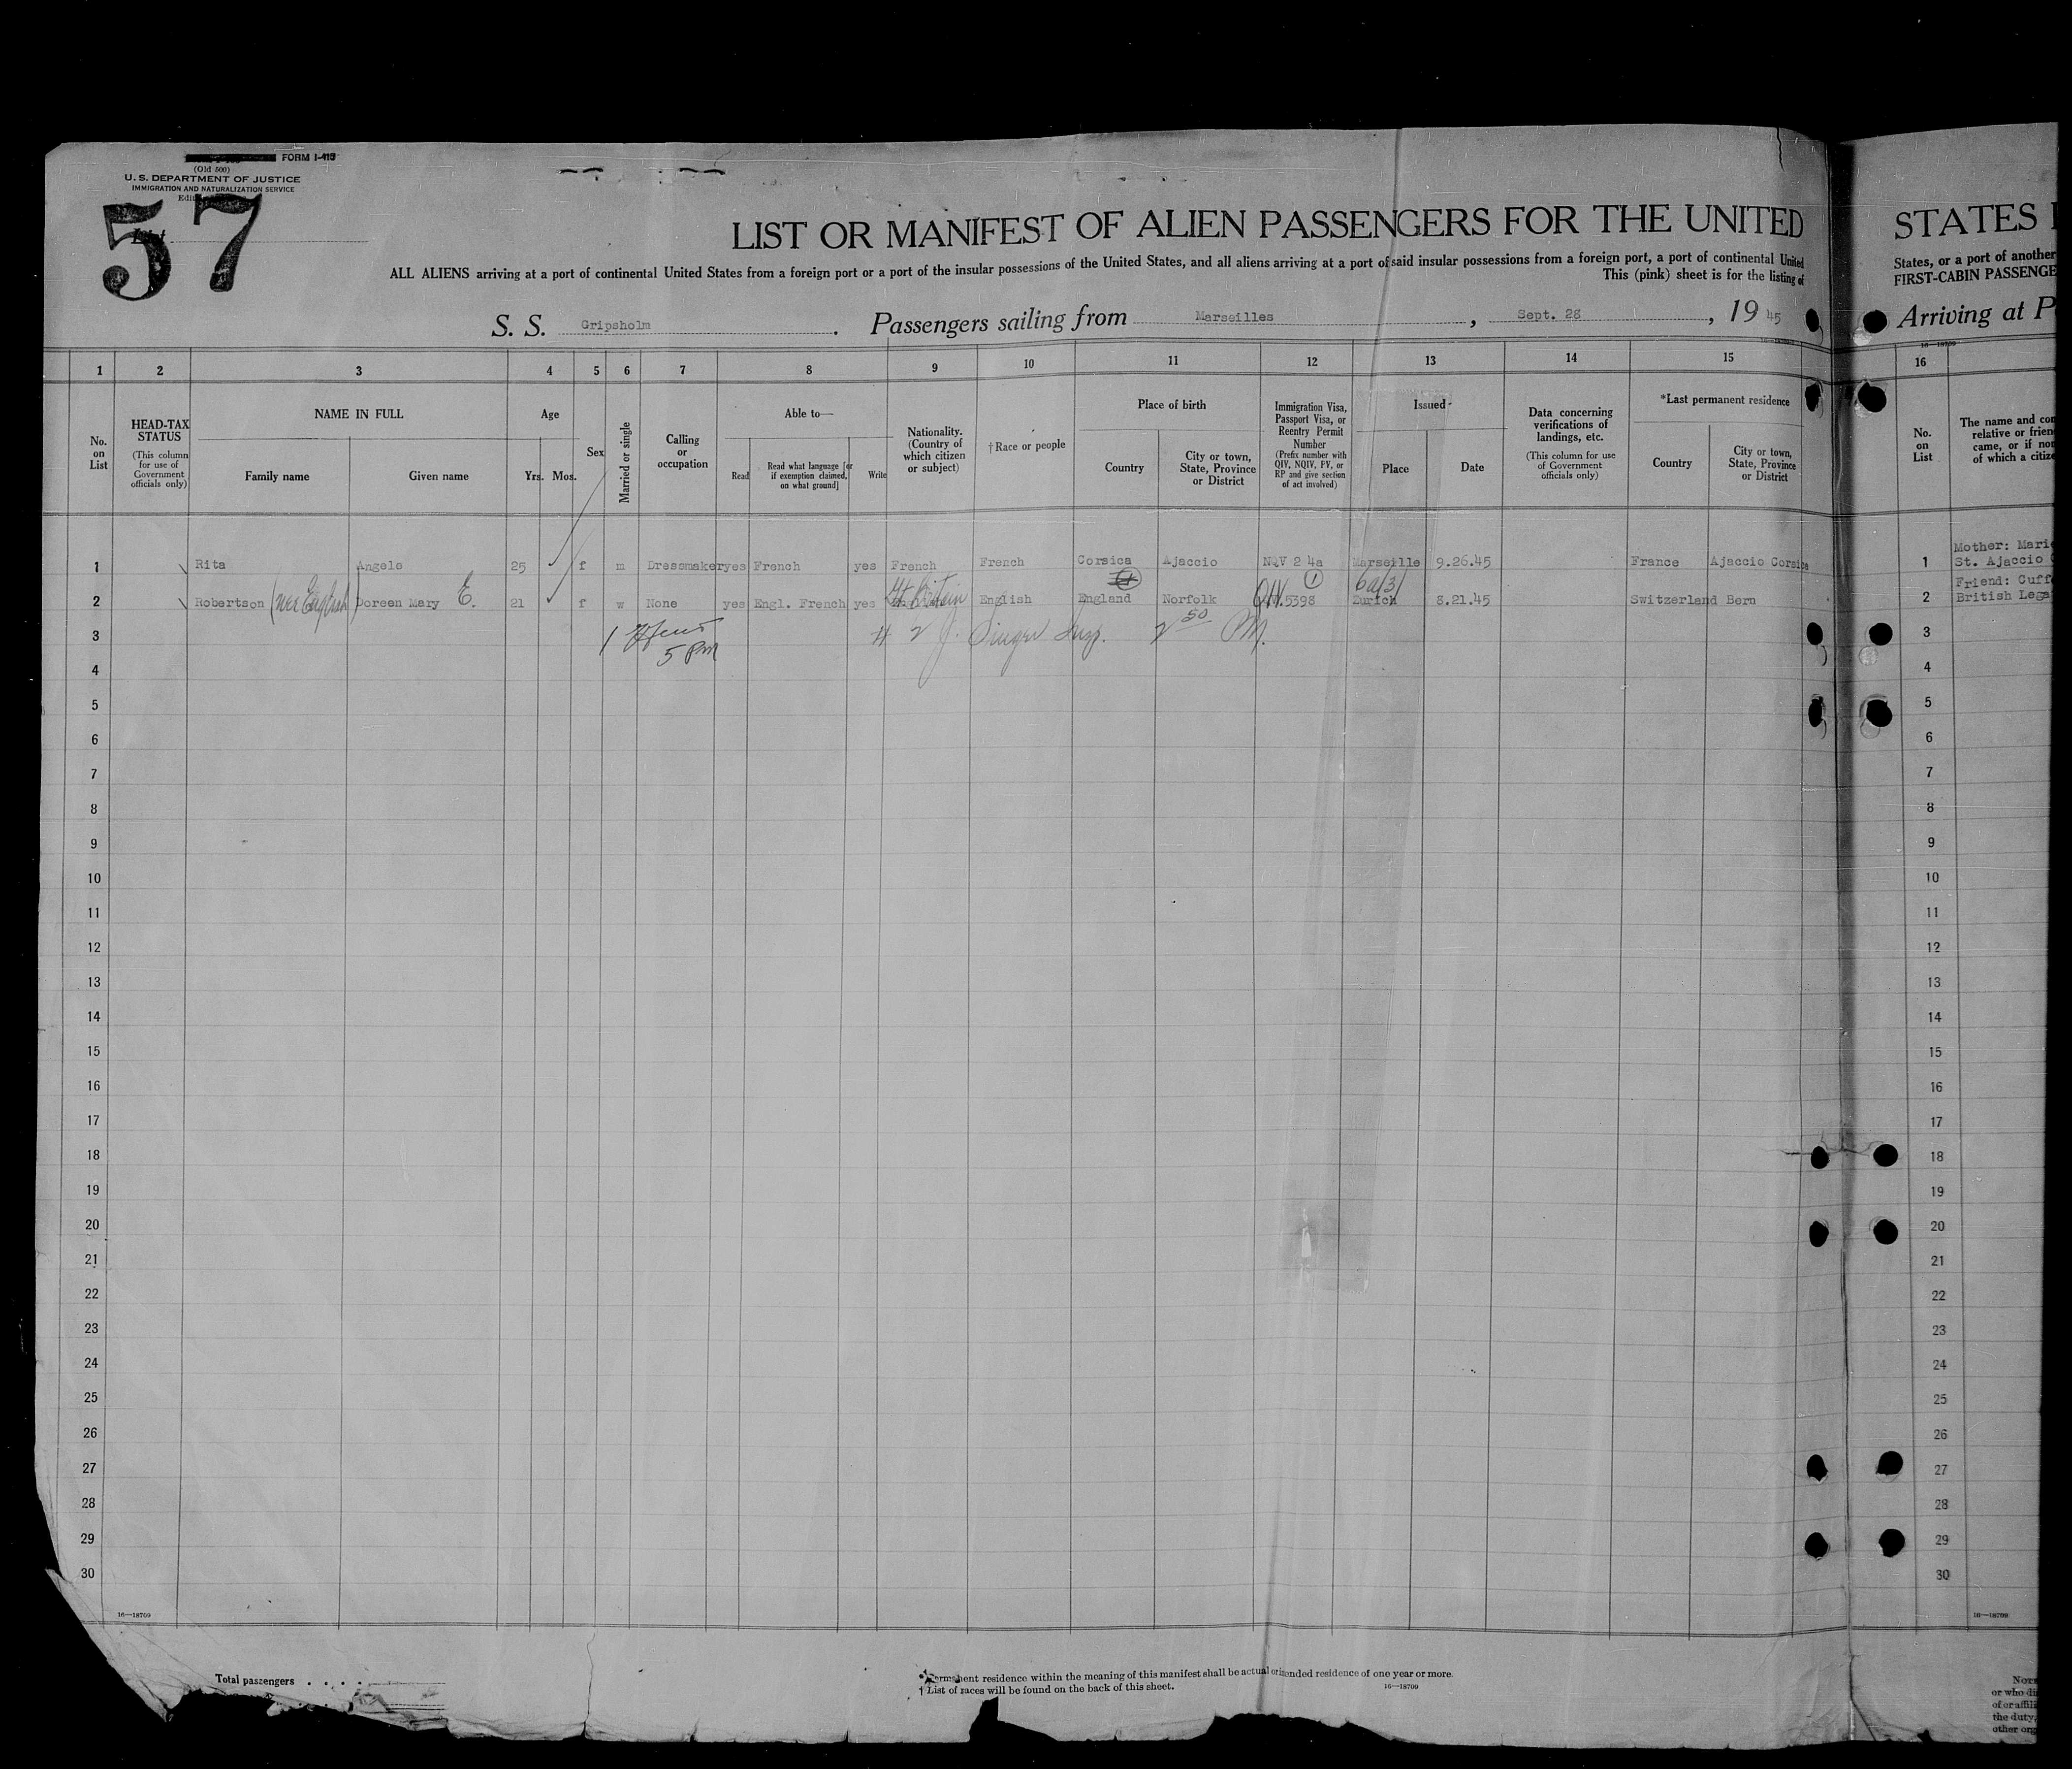 FORM I-415
(Old 500)
U. S. DEPARTMENT OF JUSTICE
IMMIGRATION AND NATURALIZATION SERVICE
57
List
LIST OR MANIFEST OF ALIEN PASSENGERS FOR THE UNITED
ALL ALIENS arriving at a port of continental United States from a foreign port or a port of the insular possessions of the United States, and all aliens arriving at a port of said insular possessions from a foreign port, a port of continental United
This (pink) sheet is for the listing of
S. S. Gripsholm. Passengers sailing from Marseilles, Sept. 28, 19 45
16—18709
1 2 3 4 5 6 7 8 9 10 11 12 13 14 15
No. on List
HEAD-TAX STATUS
(This column for use of Government officials only)
NAME IN FULL
Family name Given name
Age
Yrs. Mos.
Sex
Married or single
Calling or occupation
Able to—
Read Read what language [or if exemption claimed, on what ground] Write
Nationality. (Country of which citizen or subject)
†Race or people
Place of birth
Country City or town, State, Province or District
Immigration Visa, Passport Visa, or Reentry Permit Number
(Prefix number with QIV, NQIV, PV, or RP and give section of act involved)
Issued
Place Date
Data concerning verifications of landings, etc.
(This column for use of Government officials only)
*Last permanent residence
Country City or town, State, Province or District
1 Rita Angele 25 f m Dressmaker yes French yes French French Corsica Ajaccio NQV 2 4a Marseille 9.26.45 France Ajaccio Corsica
2 Robertson (nee English) Doreen Mary E. 21 f w None yes Engl. French yes Gt Britain English England Norfolk QIV.5398 6a(3) Zurich 8.21.45 Switzerland Bern
3 # 2 J. Singer Insp. 2 50 PM.
5 PM
4
5
6
7
8
9
10
11
12
13
14
15
16
17
18
19
20
21
22
23
24
25
26
27
28
29
30
16—18709
Total passengers . . . .
*Permanent residence within the meaning of this manifest shall be actual or intended residence of one year or more.
† List of races will be found on the back of this sheet.
16—18709
STATES
States, or a port of another
FIRST-CABIN PASSENGE
Arriving at P
16—18709
16
No. on List
The name and com
relative or frien
came, or if non
of which a citize
1 Mother: Marie
St. Ajaccio
2 Friend: Cuff
British Lega
3
4
5
6
7
8
9
10
11
12
13
14
15
16
17
18
19
20
21
22
23
24
25
26
27
28
29
30
16—18709
NOTE
or who di
of or affili
the duty,
other org